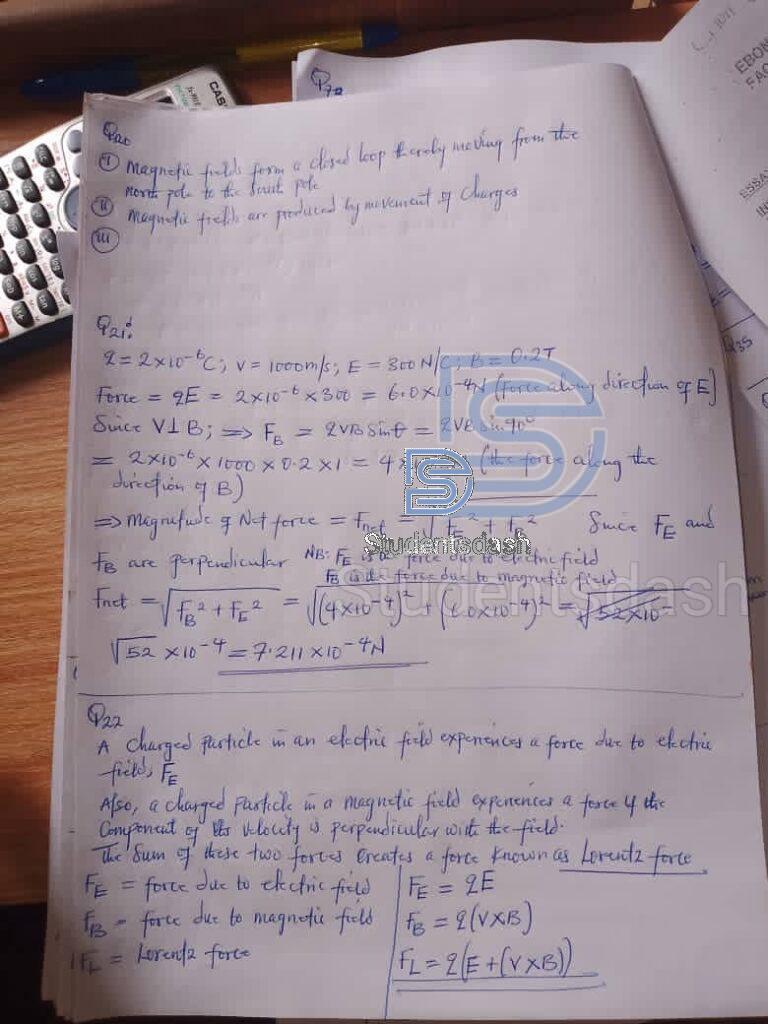 Q20
(I) Magnetic fields form a closed loop thereby moving from the
north pole to the south pole
(II) Magnetic fields are produced by movement of Charges
(III)
Q21:
q = 2×10⁻⁶C; V = 1000m/s; E = 300N/C; B = 0.2T
Force = qE = 2×10⁻⁶ × 300 = 6.0×10⁻⁴N (force along direction of E)
Since V⊥B; ⇒ F_B = qVB Sinθ = qVB Sin90°
= 2×10⁻⁶ × 1000 × 0.2 × 1 = 4 (the force along the
direction of B)
⇒ Magnitude of Net force = Fnet = √F_E² + F_B² Since F_E and
F_B are perpendicular NB: F_E is the force due to electric field
F_B is the force due to magnetic field
Fnet = √F_B² + F_E² = √(4×10⁻⁴)² + (6.0×10⁻⁴)² = √52×10⁻
√52 ×10⁻⁴ = 7.211 ×10⁻⁴N
Q22
A Charged Particle in an electric field experiences a force due to electric
field, F_E
Also, a charged Particle in a magnetic field experiences a force if the
Component of its velocity is perpendicular with the field.
The Sum of these two forces Creates a force known as Lorentz force
F_E = force due to electric field
F_B = force due to magnetic field
F_L = Lorentz force
F_E = qE
F_B = q(V×B)
F_L = q(E+(V×B))
Studentsdash
Studentsdash
CASIO
EBON
FAC
ESSAY
Q35